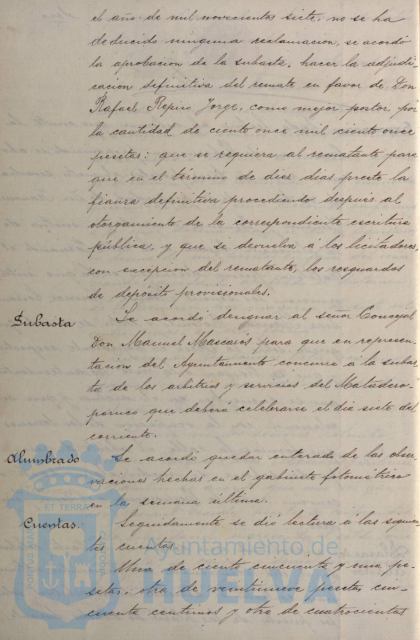 el año de mil novecientos siete, no se ha
deducido ninguna reclamacion, se acordó
la aprobacion de la subasta, hacer la adjudi-
cacion definitiva del remate en favor de Don
Rafael Repiso Jorge, como mejor postor por
la cantidad de ciento once mil ciento once
pesetas: que se requiera al rematante para
que en el término de diez dias preste la
fianza definitiva procediendo despues al
otorgamiento de la correspondiente escritura
pública, y que se devuelva á los licitadores,
con excepcion del rematante, los resguardos
de depósito provisionales.
Subasta
Se acordó designar al señor Concejal
Don Manuel Mascarós para que en represen-
tacion del Ayuntamiento concurra á la subas-
ta de los arbitrios y servicios del Matadero
público que deberá celebrarse el dia siete del
corriente.
Alumbrado
Se acordó quedar enterado de las obser-
vaciones hechas en el gabinete fotométrico
en la semana última.
Cuentas.
Seguidamente se dió lectura á las siguien-
tes cuentas.
Una de ciento cincuenta y una pe-
setas; otra de veintinueve pesetas cin-
cuenta centimos y otra de cuatrocientas
Ayuntamiento de
HUELVA